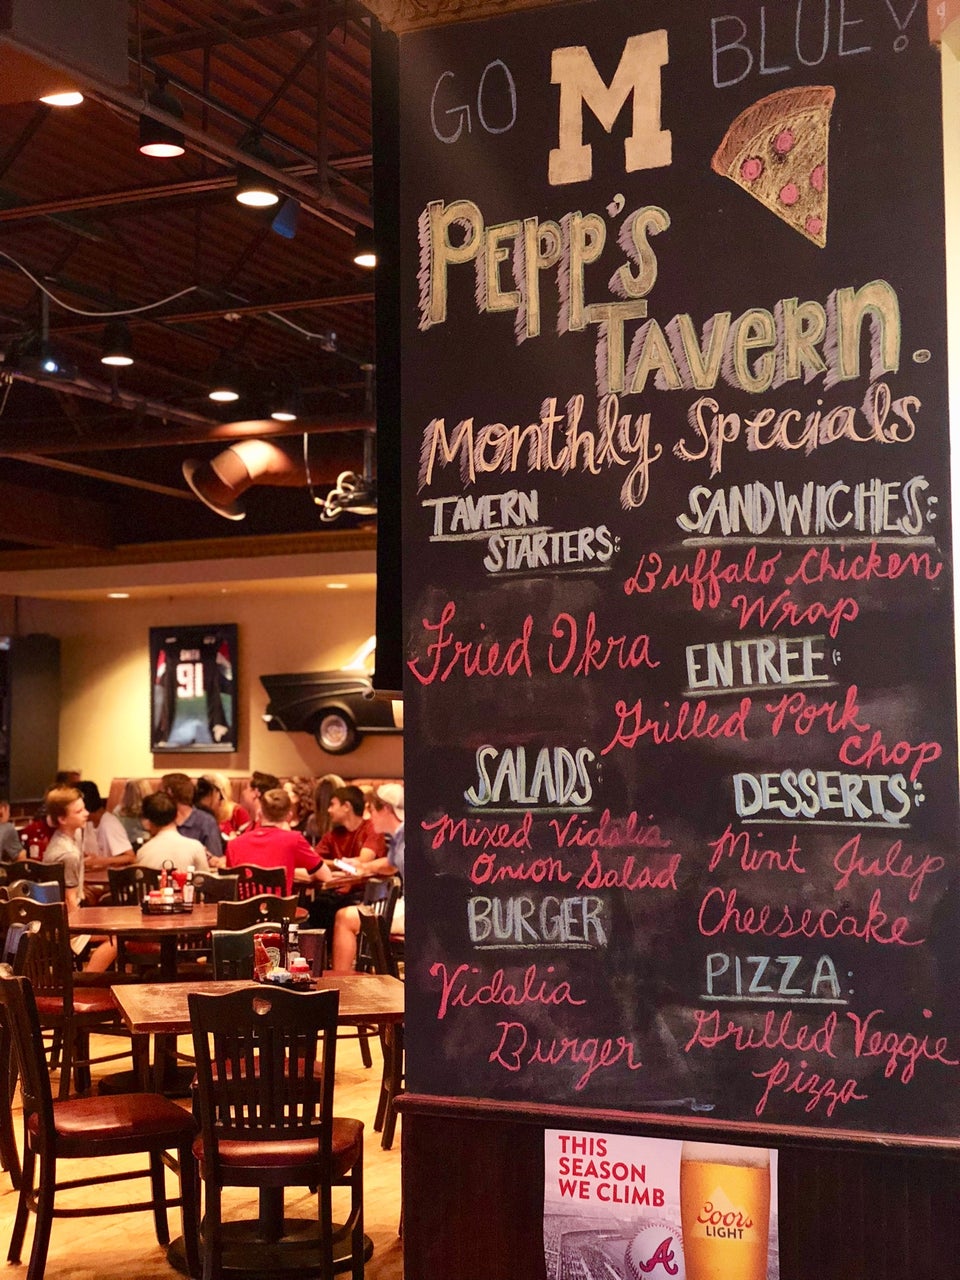 GO M BLUE!
PEPP'S
TAVERN.
Monthly Specials
TAVERN
STARTERS:
Fried Okra
SALADS:
Mixed Vidalia
Onion Salad
BURGER
Vidalia
Burger
SANDWICHES:
Buffalo Chicken
Wrap
ENTREE:
Grilled Pork
Chop
DESSERTS:
Mint Julep
Cheesecake
PIZZA:
Grilled Veggie
Pizza
THIS
SEASON
WE CLIMB
Coors
LIGHT
A
91